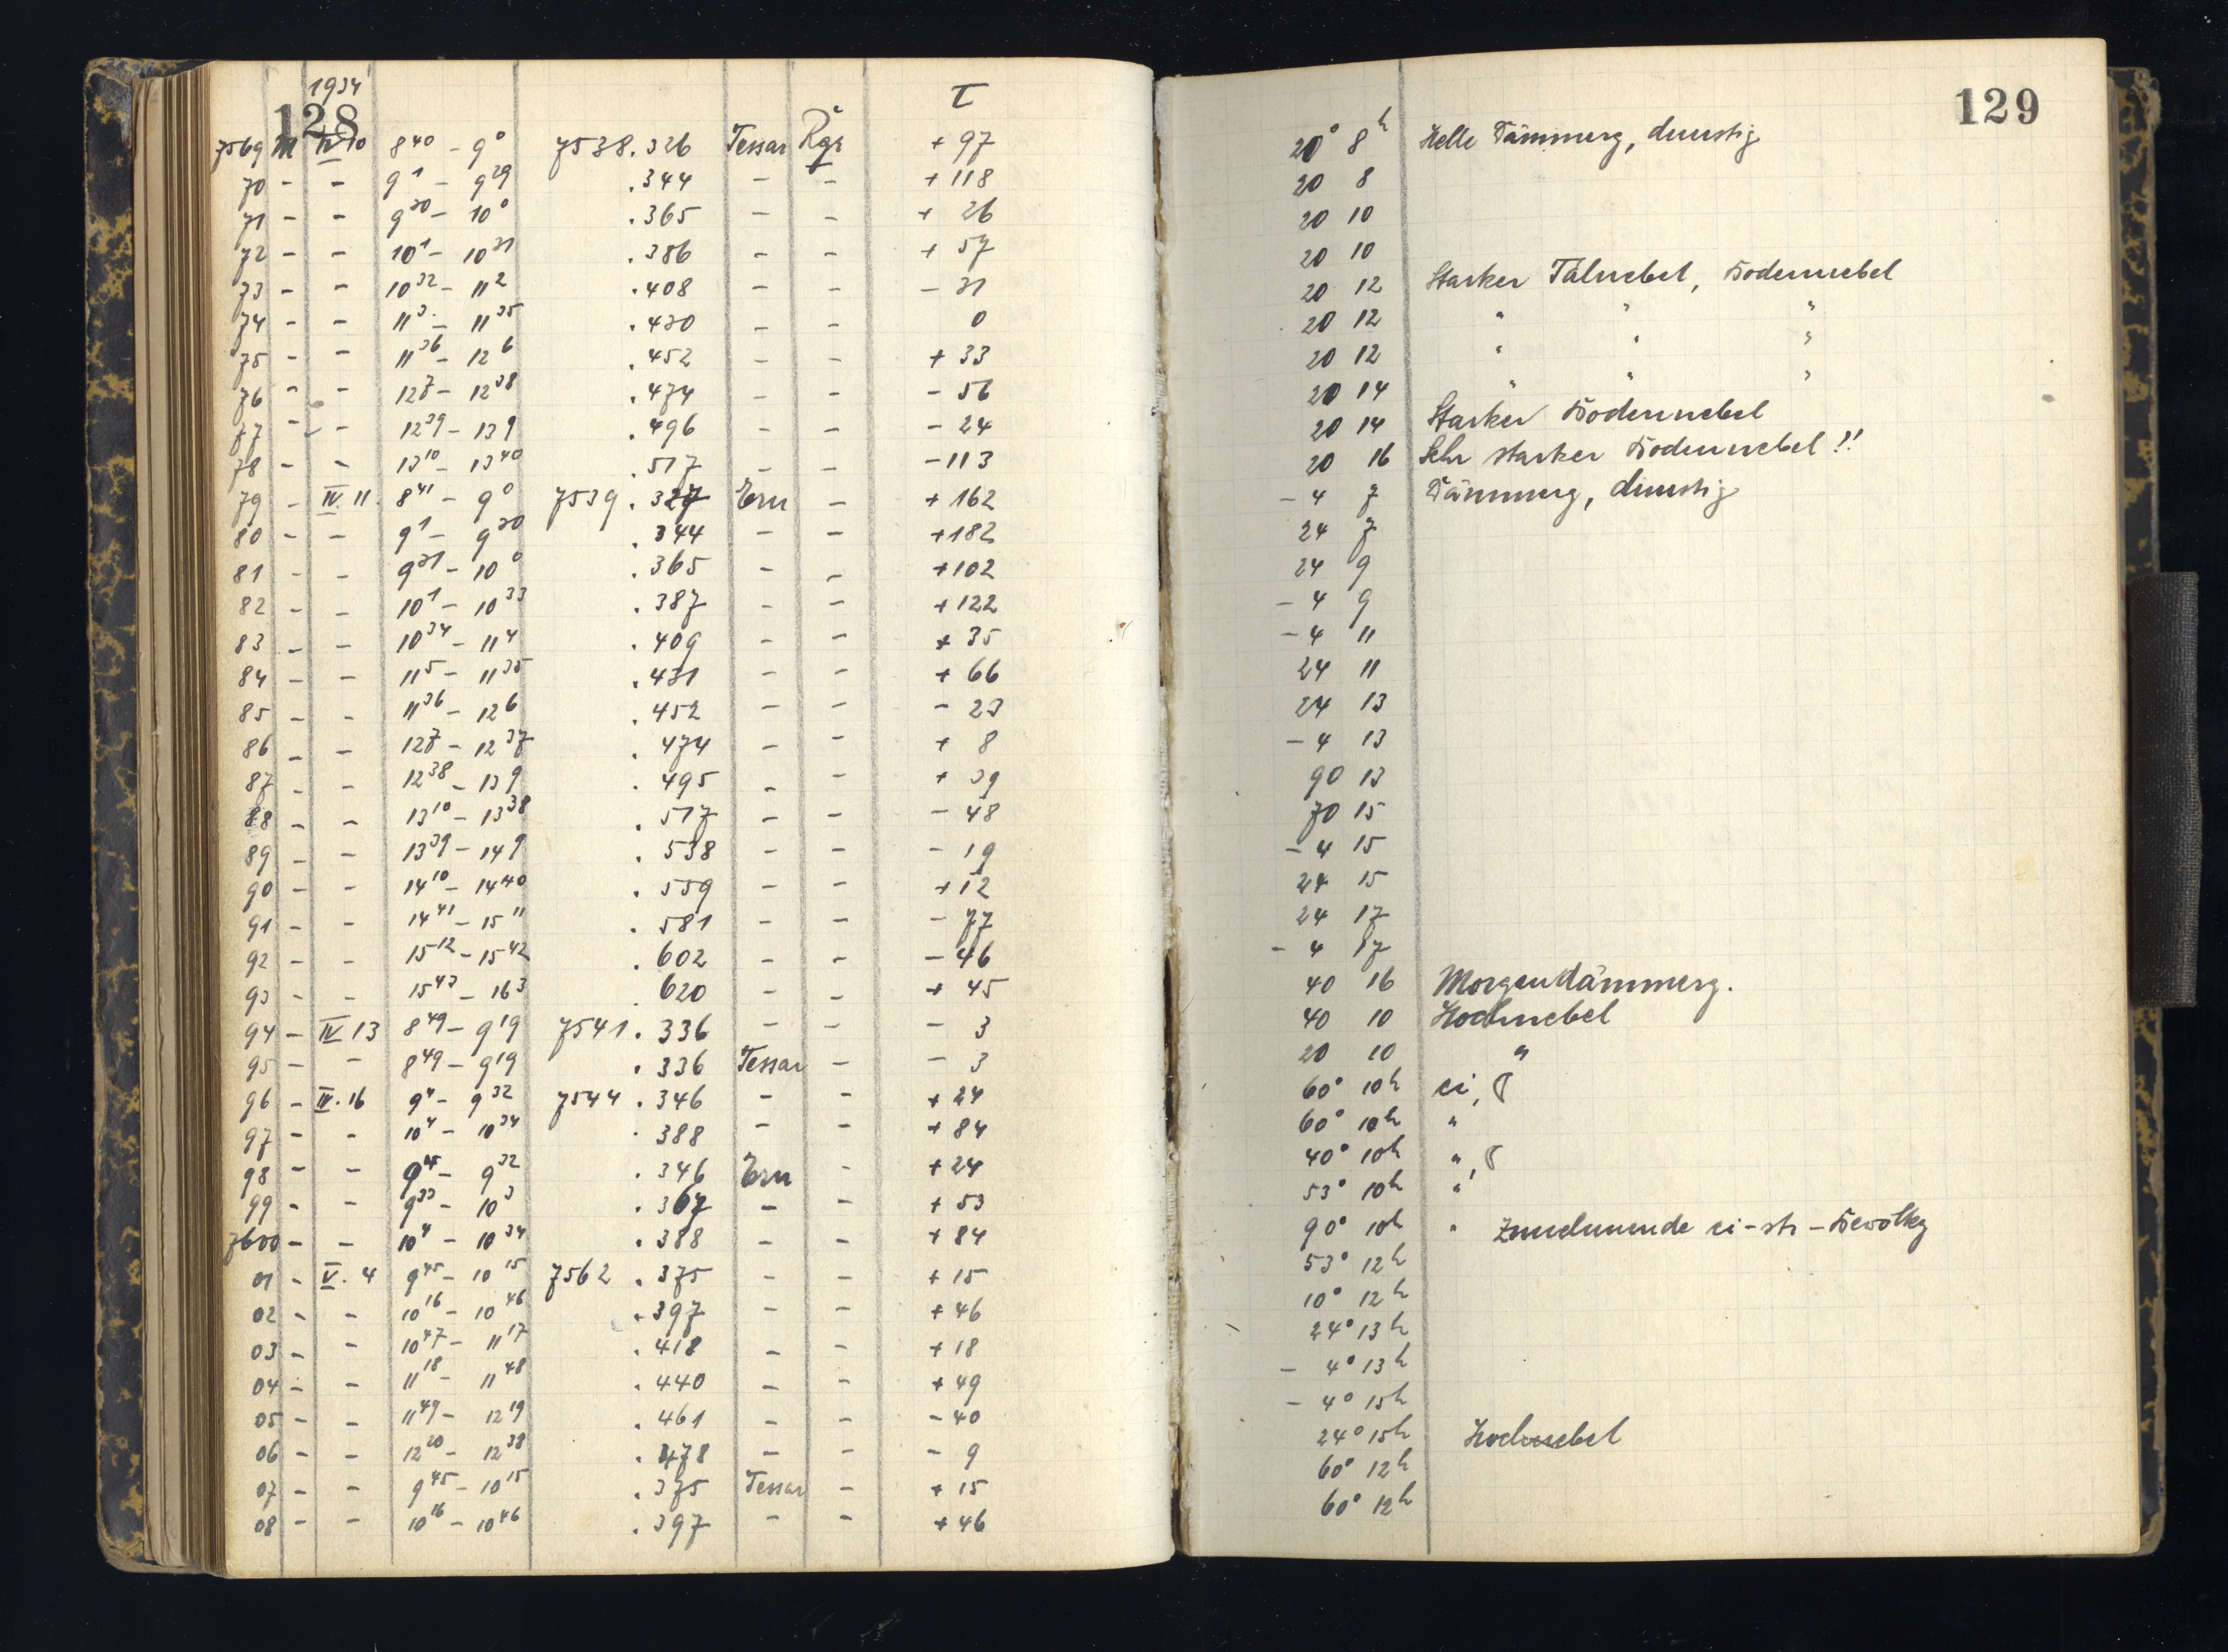 1934
128 τ
7569 M IV 10 8 40 - 9 0 7538.326 Tessar Rgr + 97
70 - - 9 1 - 9 29 .344 - - + 118
71 - - 9 30 - 10 0 .365 - - + 26
72 - - 10 1 - 10 31 .386 - - + 57
73 - - 10 32 - 11 2 .408 - - - 31
74 - - 11 3 - 11 35 .430 - - 0
75 - - 11 36 - 12 6 .452 - - + 33
76 - - 12 7 - 12 38 .474 - - - 56
77 - - 12 39 - 13 9 .496 - - - 24
78 - - 13 10 - 13 40 .517 - - - 113
79 - IV. 11. 8 41 - 9 0 7539.327 Ern - + 162
80 - - 9 1 - 9 30 .344 - - + 182
81 - - 9 31 - 10 0 .365 - - + 102
82 - - 10 1 - 10 33 .387 - - + 122
83 - - 10 34 - 11 4 .409 - - + 35
84 - - 11 5 - 11 35 .431 - - + 66
85 - - 11 36 - 12 6 .452 - - - 23
86 - - 12 7 - 12 37 .474 - - + 8
87 - - 12 38 - 13 9 .495 - - + 39
88 - - 13 10 - 13 38 .517 - - - 48
89 - - 13 39 - 14 9 .538 - - - 19
90 - - 14 10 - 14 40 .559 - - + 12
91 - - 14 41 - 15 11 .581 - - - 77
92 - - 15 12 - 15 42 .602 - - - 46
93 - - 15 43 - 16 3 .620 - - + 45
94 - IV 13 8 49 - 9 19 7541.336 - - - 3
95 - - 8 49 - 9 19 .336 Tessar - - 3
96 - IV. 16 9 4 - 9 32 7544.346 - - + 24
97 - - 10 4 - 10 34 .388 - - + 84
98 - - 9 4 - 9 32 .346 Ern - + 24
99 - - 9 33 - 10 3 .367 - - + 53
7600 - - 10 4 - 10 34 .388 - - + 84
01 - V. 4 9 45 - 10 15 7562.375 - - + 15
02 - - 10 16 - 10 46 .397 - - + 46
03 - - 10 47 - 11 17 .418 - - + 18
04 - - 11 18 - 11 48 .440 - - + 49
05 - - 11 49 - 12 19 .461 - - - 40
06 - - 12 20 - 12 38 .478 - - - 9
07 - - 9 45 - 10 15 .375 Tessar - + 15
08 - - 10 16 - 10 46 .397 - - + 46
129
20° 8h Helle Dämmerg, dunstig
20 8
20 10
20 10
20 12 Starker Talnebel, Bodennebel
20 12 " " "
20 12 " " "
20 14 " " "
20 14 Starker Bodennebel
20 16 Sehr starker Bodennebel!!
- 4 7 Dämmerg, dunstig
24 7
24 9
- 4 9
- 4 11
24 11
24 13
- 4 13
90 13
70 15
- 4 15
24 15
24 17
- 4 17
40 16 Morgendämmerg.
40 10 Hochnebel
20 10 "
60° 10h ci,
60° 10h "
40° 10h ",
53° 10h "
90° 10h " Zunehmende ci-str-Bewölkg
53° 12h
10° 12h
24° 13h
- 4° 13h
- 4° 15h
24° 15h Hochnebel
60° 12h
60° 12h